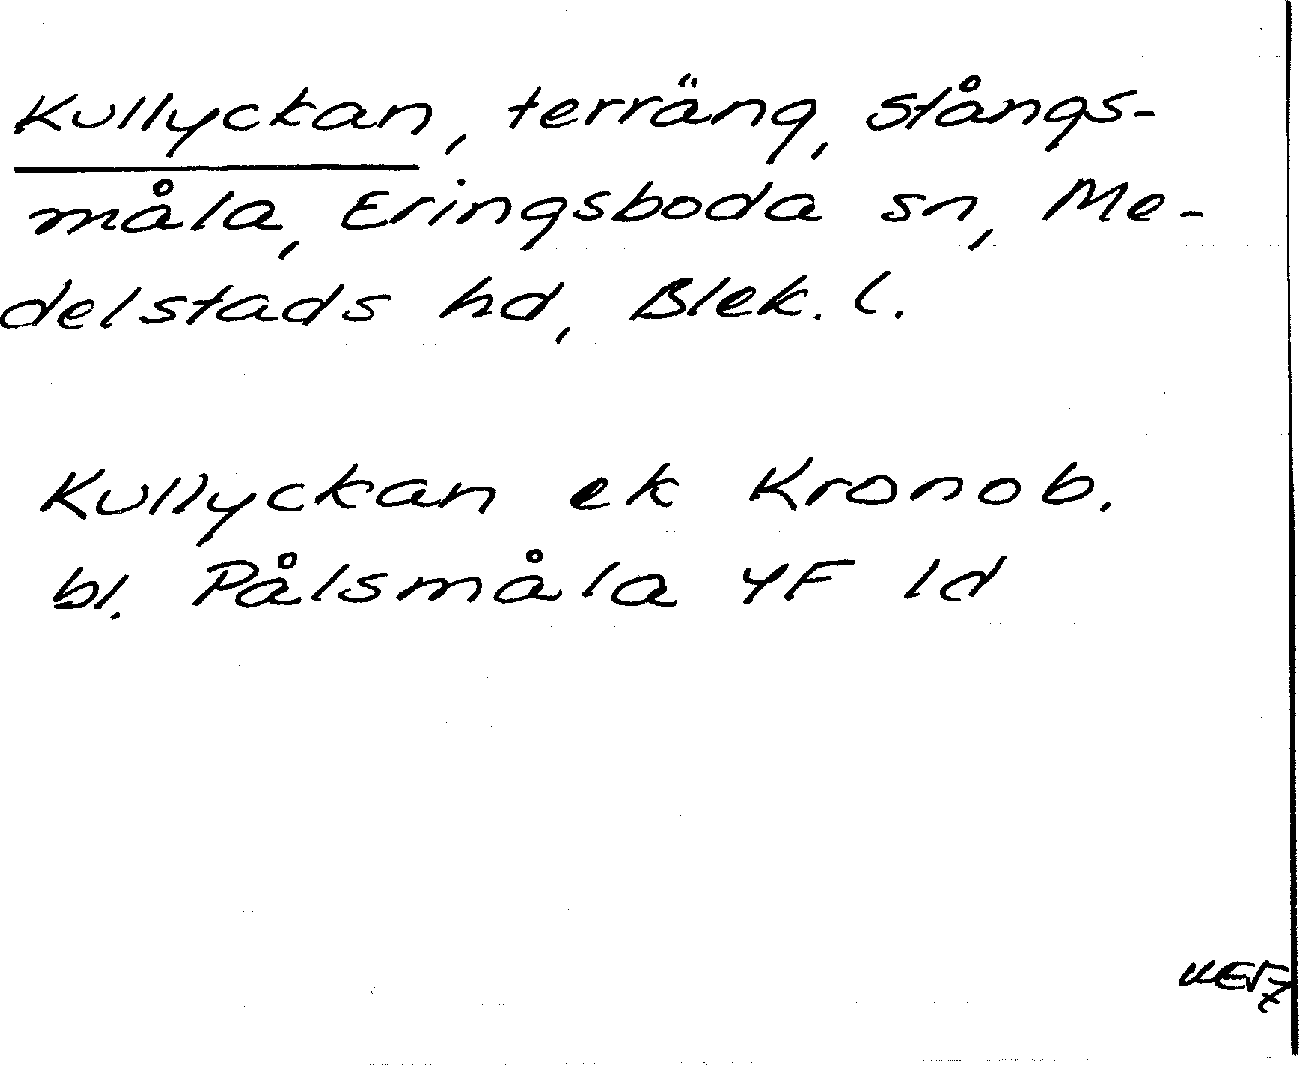 Kullyckan, terräng, Stångs-
måla, Eringsboda sn, Me-
delstads hd, Blek. l.
Kullyckan ek Kronob.
bl. Pålsmåla 4F ld